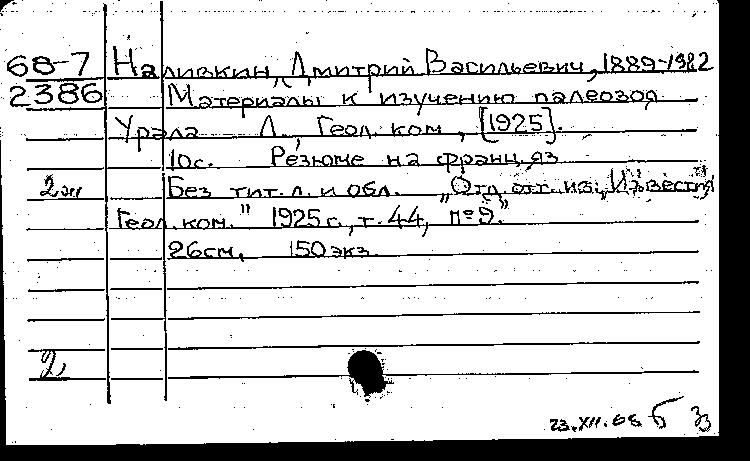 68-7 Наливкин, Дмитрий Васильевич, 1889-1982
2386 Материалы к изучению палеозоя
Урала Л., Геол. ком., [1925].
10с. Резюме на франц. яз
2эк Без тит. л. и обл. „Отд. отт. из: „Известия
Геол. ком." 1925г., т. 44, №9."
26см, 150 экз.
2
23.XII.68 Б